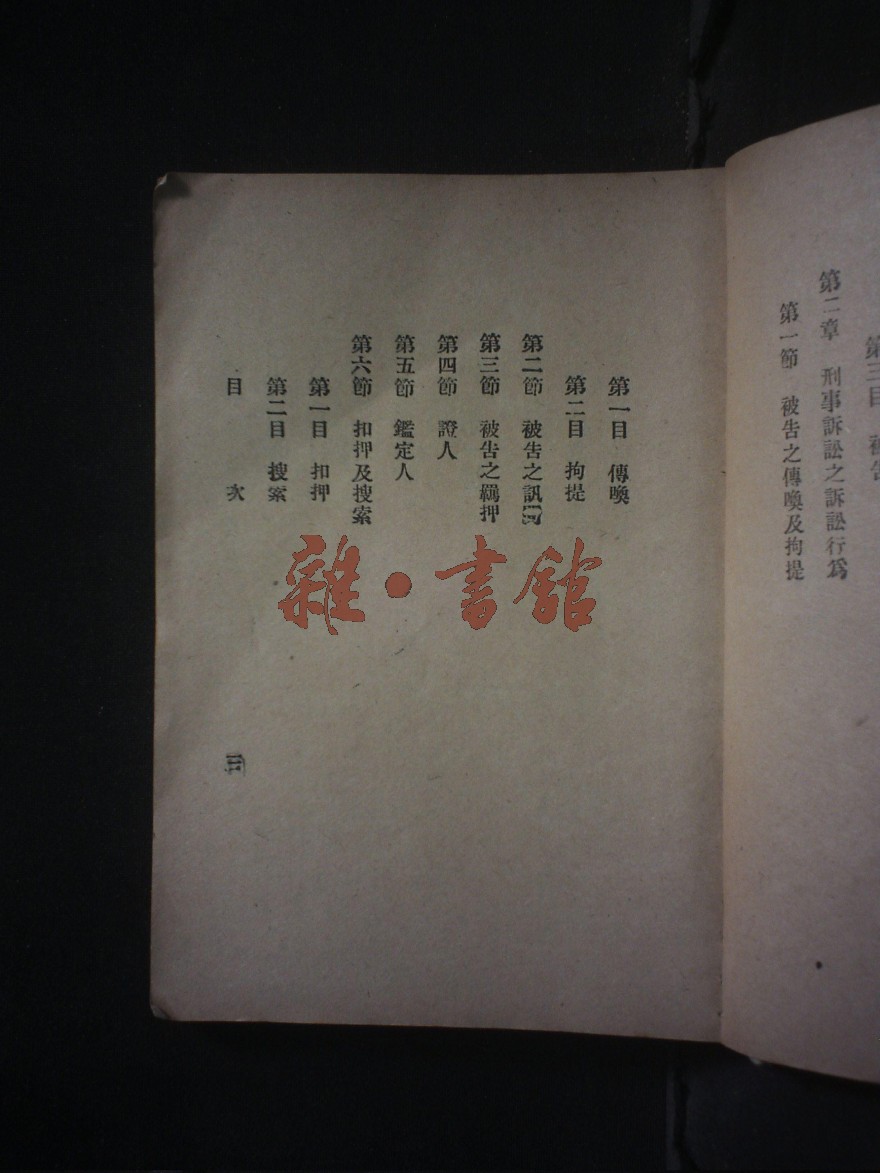 第三目 被告
第二章 刑事訴訟之訴訟行爲
第一節 被告之傳喚及拘提
第一目 傳喚
第二目 拘提
第二節 被告之訊問
第三節 被告之羈押
第四節 證人
第五節 鑑定人
第六節 扣押及搜索
第一目 扣押
第二目 搜索
目 次
三
雜·書館